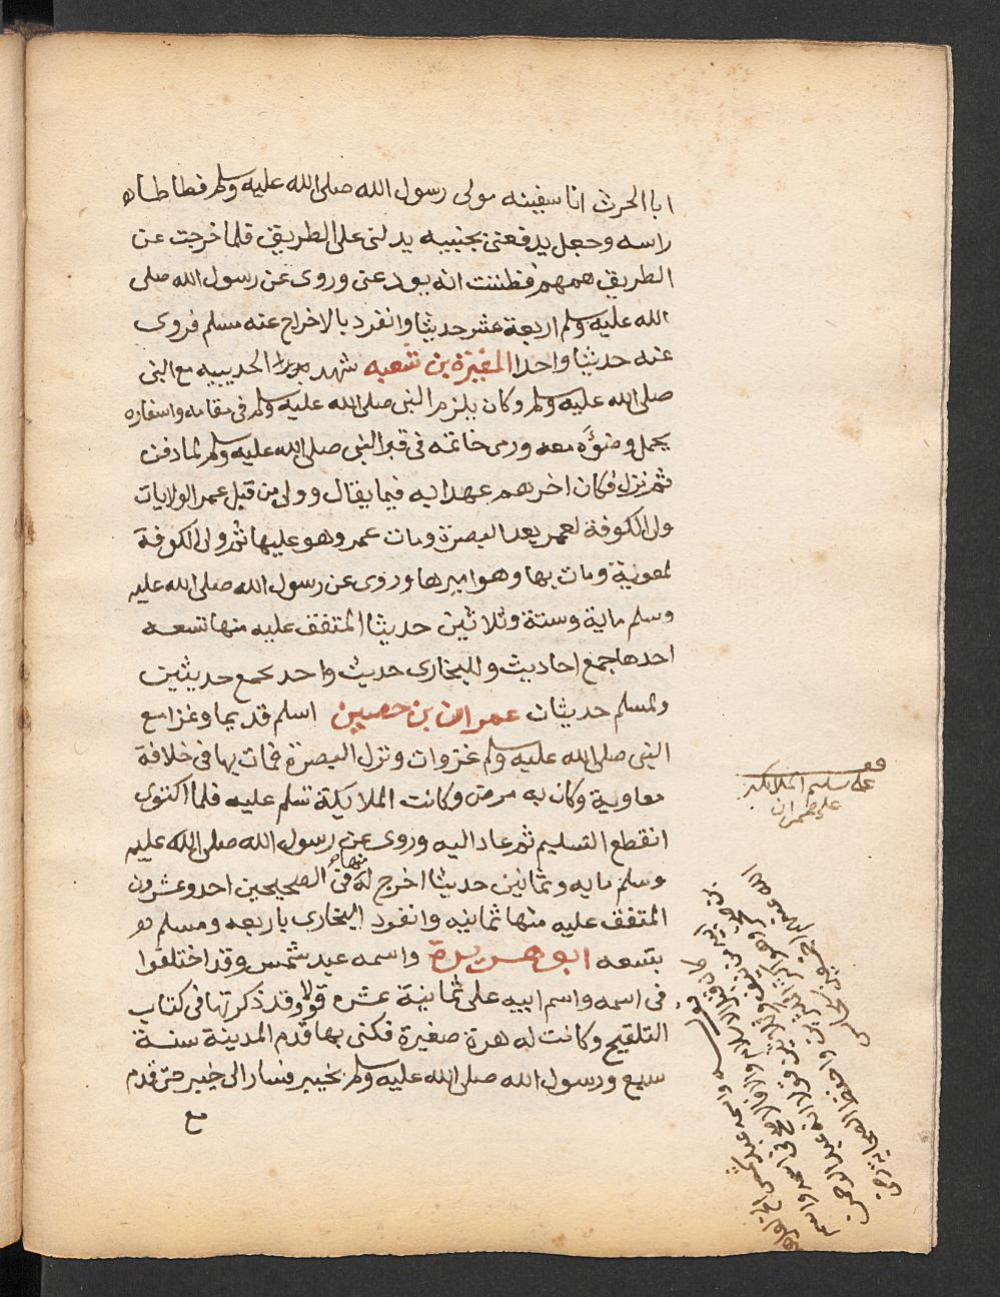 ابا الحرث انا سفينه مولى رسول الله صلى الله عليه وسلم فطاطاه
راسه وجعل يدفعنى بجنبيه يدلنى على الطريق فلما خرجت عن
الطريق همهم فظننت انه يودعنى وروى عن رسول الله صلى
الله عليه وسلم اربعة عشر حديثا وانفرد بالاخراج عنه مسلم فروى
عنه حديثا واحدا المغيرة بن شعبه شهد الحديبيه مع النبى
صلى الله عليه وسلم وكان يلزم النبى صلى الله عليه وسلم فى مقامه واسفاره
يحمل وضوءه معه ورمى خاتمه فى قبر النبى صلى الله عليه وسلم لما دفن
ثم نزل فكان اخرهم عهدا به فيما يقال وولى من قبل عمر الولايات
ولى الكوفة لعمر بعد البصرة ومات عمر وهو عليها ثم ولى الكوفة
لمعوية ومات بها وهو اميرها وروى عن رسول الله صلى الله عليه
وسلم ماية وستة وثلاثين حديثا المتفق عليه منها تسعه
احدها جمع احاديث وللبخارى حديث واحد يجمع حديثين
ولمسلم حديثان عمران بن حصين اسلم قديما وغزا مع
النبى صلى الله عليه وسلم غزوات ونزل البصرة فمات بها فى خلافة
معاوية وكان به مرض وكانت الملايكة تسلم عليه فلما اكتوى
انقطع التسليم ثم عاد اليه وروى عن رسول الله صلى الله عليه
وسلم مايه وثمانين حديثا اخرج له منها فى الصحيحين احد وعشرون
المتفق عليه منها ثمانيه وانفرد البخارى باربعه ومسلم
بتسعه ابو هريرة واسمه عبد شمس وقد اختلفوا
فى اسمه واسم ابيه على ثمانية عشره قولا وقد ذكرتها فى كتاب
التلقيح وكانت له هرة صغيرة فكنى بها قدم المدينة سنة
سبع ورسول الله صلى الله عليه وسلم بخيبر فسار الى خيبر حتى قدم
مع
قف
على تسليم الملايكة
على عمران